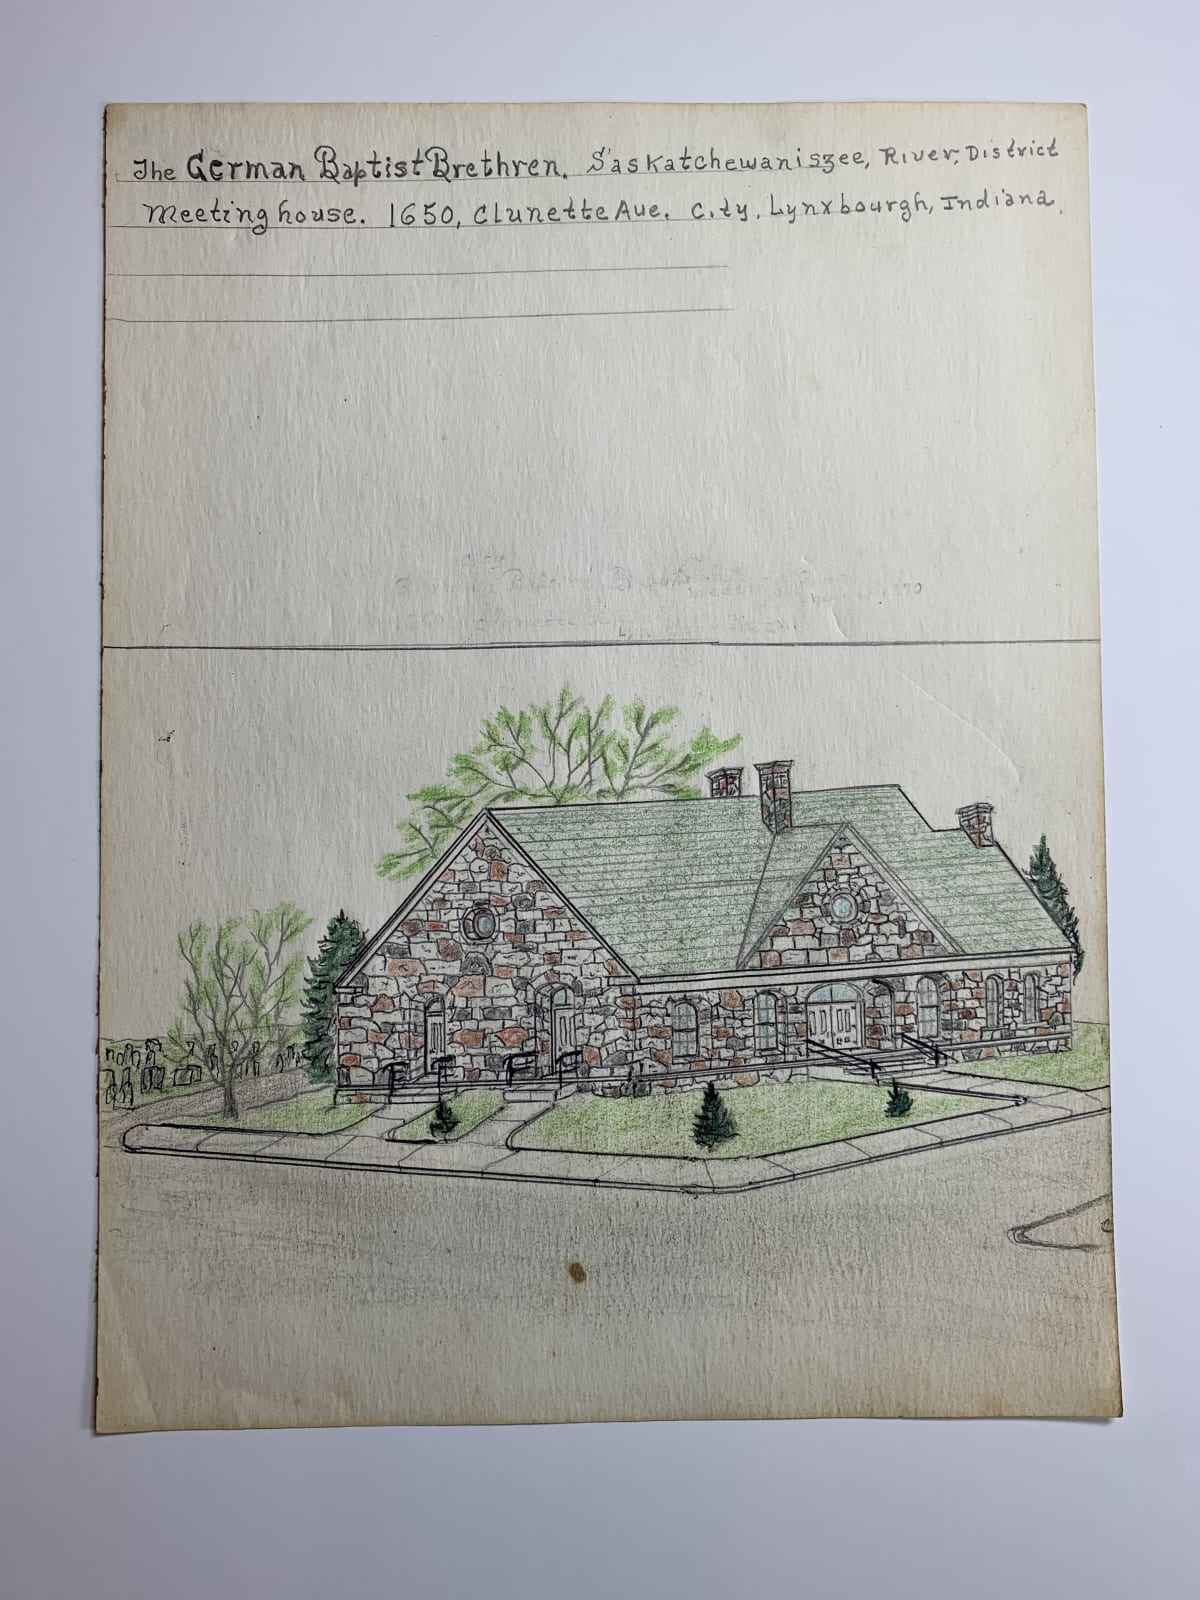 The German Baptist Brethren. Saskatchewaniszee, River, District
Meeting house. 1650, Clunette Ave. City, Lynxbourgh, Indiana,